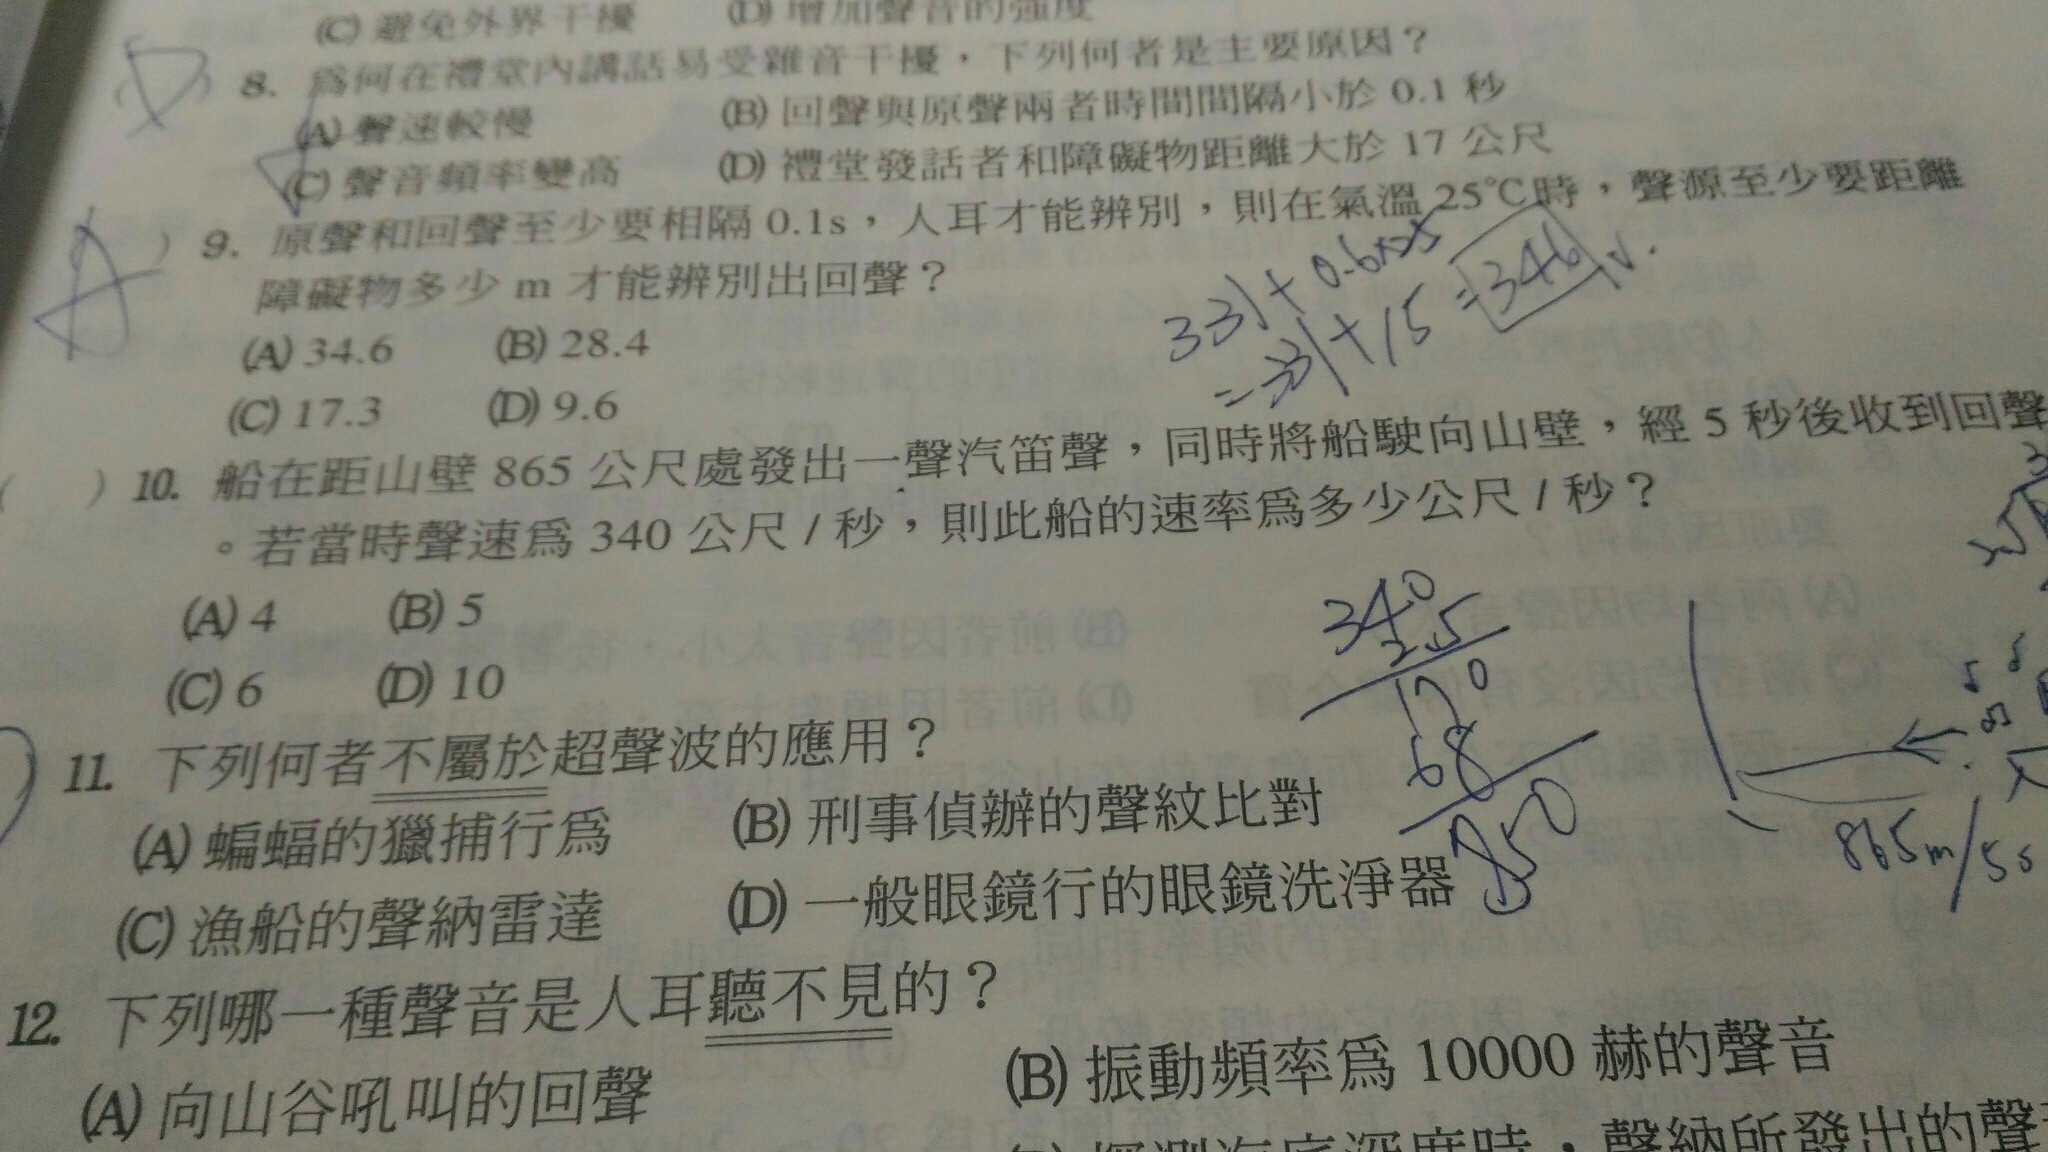 (C) 避免外界干擾 (D) 增加聲音的強度
8. 為何在禮堂內講話易受雜音干擾，下列何者是主要原因？
(A) 聲速較慢 (B) 回聲與原聲兩者時間間隔小於 0.1 秒
(C) 聲音頻率變高 (D) 禮堂發話者和障礙物距離大於 17 公尺
) 9. 原聲和回聲至少要相隔 0.1s，人耳才能辨別，則在氣溫 25℃時，聲源至少要距離
障礙物多少 m 才能辨別出回聲？
331+0.6×25
=331+15=346
(A) 34.6 (B) 28.4
(C) 17.3 (D) 9.6
( ) 10. 船在距山壁 865 公尺處發出一聲汽笛聲，同時將船駛向山壁，經 5 秒後收到回聲
。若當時聲速為 340 公尺 / 秒，則此船的速率為多少公尺 / 秒？
(A) 4 (B) 5
(C) 6 (D) 10
340
2.5
170
68
850
865m/5s
11. 下列何者不屬於超聲波的應用？
(A) 蝙蝠的獵捕行為 (B) 刑事偵辦的聲紋比對
(C) 漁船的聲納雷達 (D) 一般眼鏡行的眼鏡洗淨器
12. 下列哪一種聲音是人耳聽不見的？
(A) 向山谷吼叫的回聲 (B) 振動頻率為 10000 赫的聲音
探測海底深度時，聲納所發出的聲